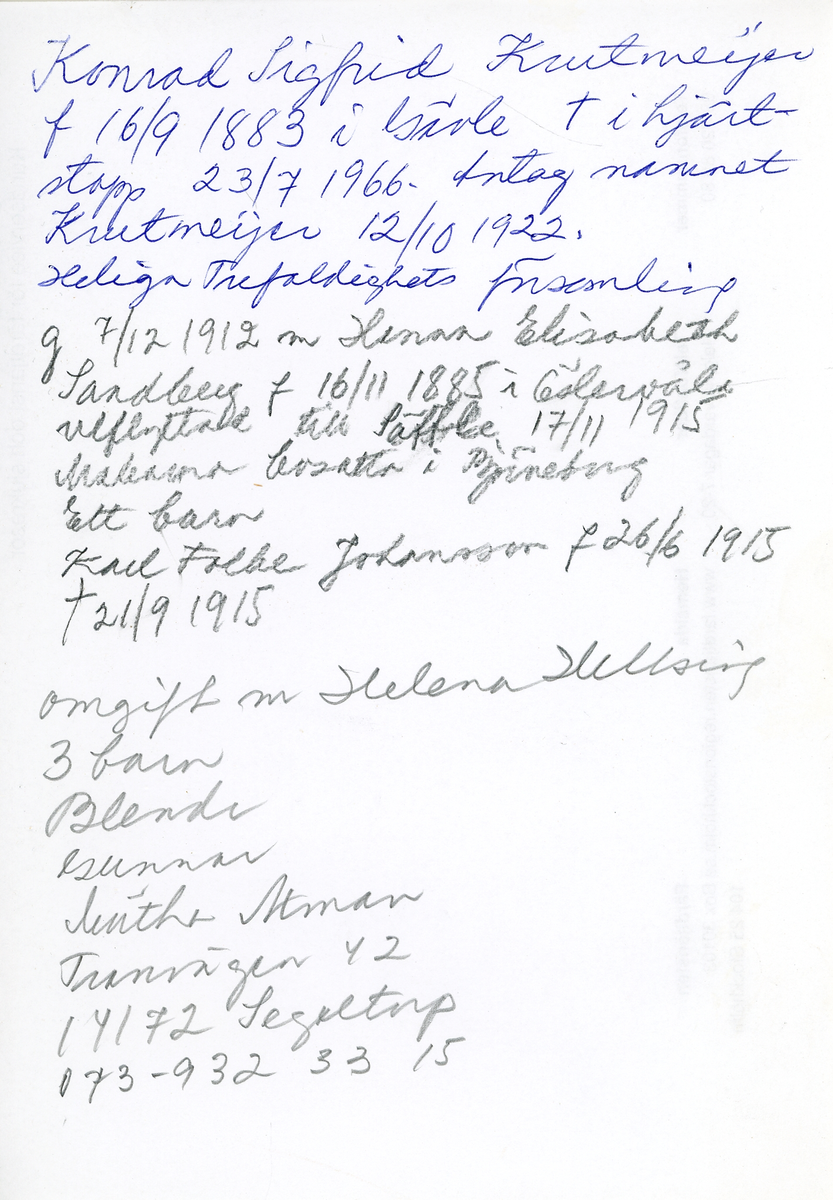 Konrad Sigfrid Krutmeijer
f 16/9 1883 i Gävle † i hjärt-
stopp 23/7 1966. Antog namnet
Krutmeijer 12/10 1922.
Heliga Trefaldighets församling
g 7/12 1912 m Hanna Elisabeth
Sandberg f 16/11 1885 i Östervåla
utflyttad till Säffle 17/11 1915
Makarna bosatta i Björneborg
Ett barn
Karl Folke Johansson f 26/6 1915
† 21/9 1915
omgift m Helena Hellsing
3 barn
Blenda
Gunnar
Märtha
Tranvägen 42
14172 Segeltorp
073-932 33 15